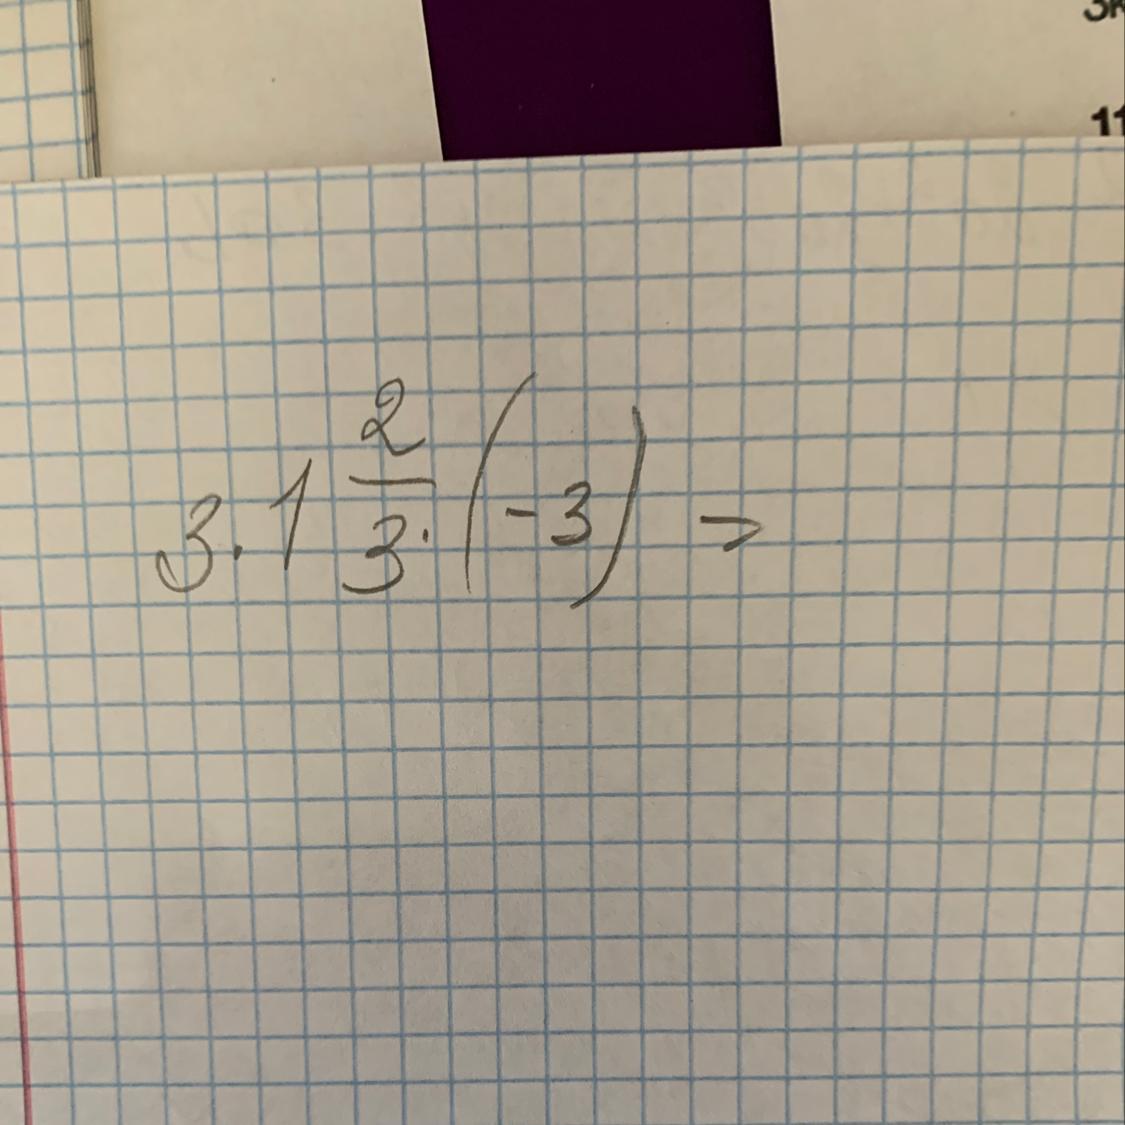 3к
11
3 · 1 2/3 · (-3) =